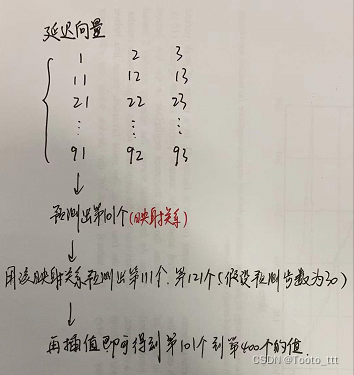 延迟向量
1 2 3
11 12 13
21 22 23
⋮ ⋮ ⋮
91 92 93
↓
预测出第101个(映射关系)
↓
用该映射关系预测出第111个、第121个(假设预测步数为30)
↓
再插值即可得到第101个到第400个的值.
CSDN @Tooto_ttt